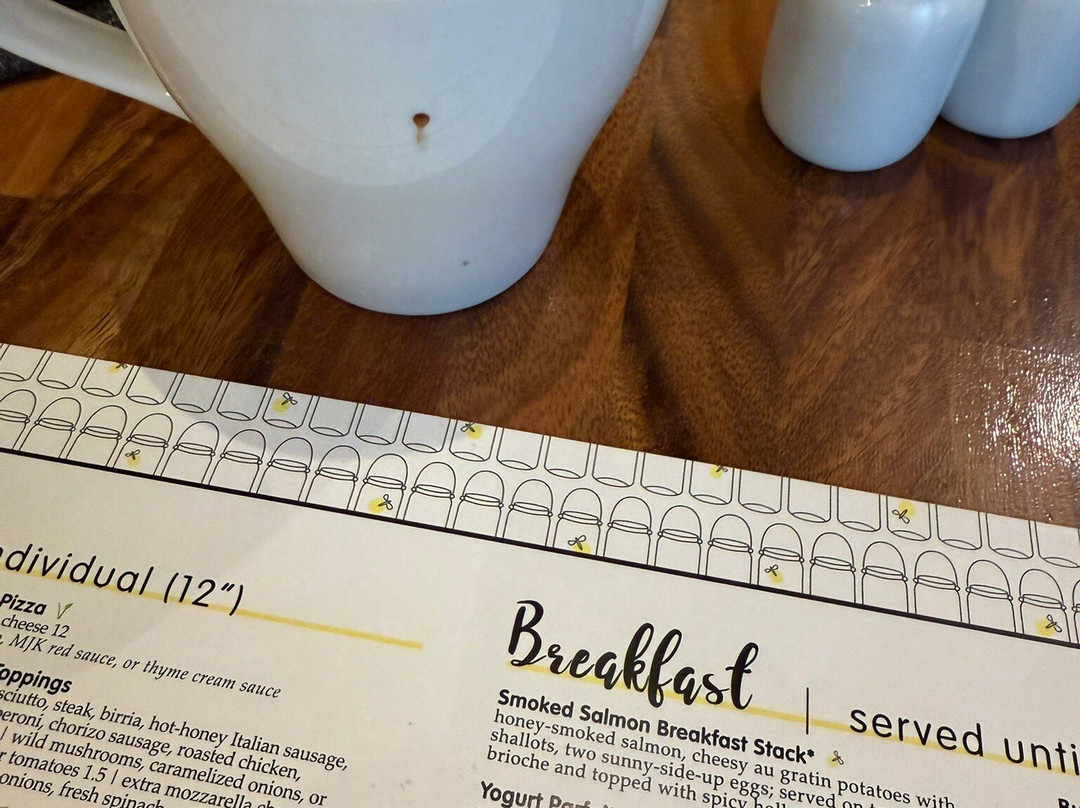 (12")
Pizza
cheese 12
MJK red sauce, or thyme cream sauce
steak, birria, hot-honey Italian sausage,
chorizo sausage, roasted chicken,
| wild mushrooms, caramelized onions, or
tomatoes 1.5 | extra mozzarella
onions, fresh spinach
Breakfast | served
Smoked Salmon Breakfast Stack*
honey-smoked salmon, cheesy au gratin potatoes with
shallots, two sunny-side-up eggs; served on
brioche and topped with spicy
Yogurt